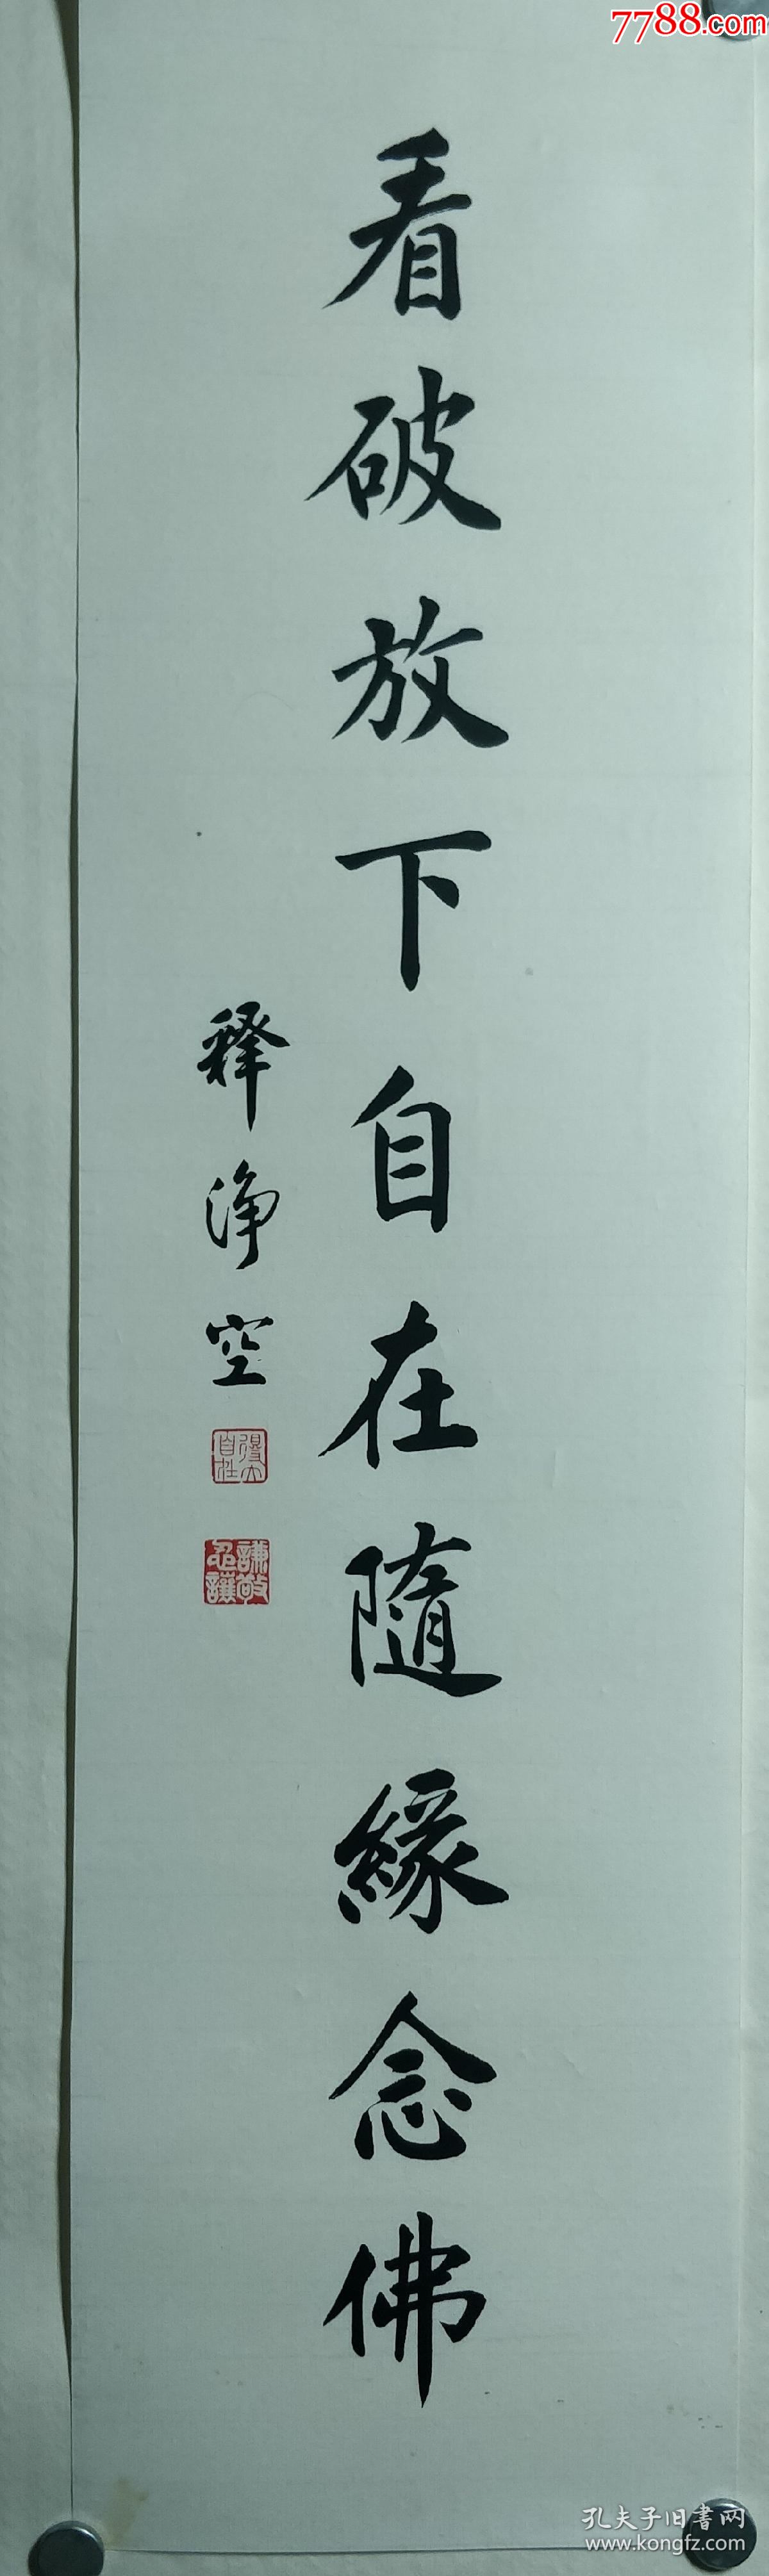 7788.com
看破放下自在隨緣念佛
释净空
謙敬忍讓
孔夫子旧書网
www.kongfz.com